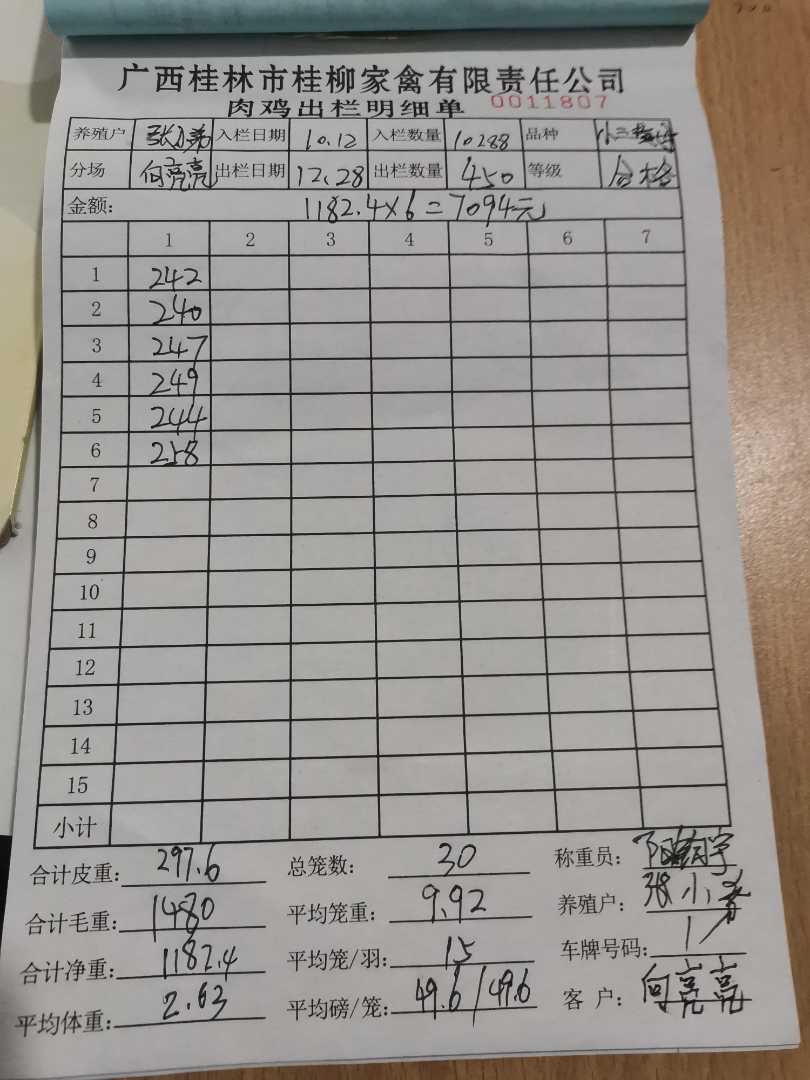 广西桂林市桂柳家禽有限责任公司
肉鸡出栏明细单 0011807
养殖户 入栏日期 10.12 入栏数量 10288 品种
分场 何亮亮 出栏日期 12.28 出栏数量 450 等级 合格
金额: 1182.4×6=7094元
1 2 3 4 5 6 7
1 242
2 240
3 247
4 249
5 244
6 258
7
8
9
10
11
12
13
14
15
小计
合计皮重: 297.6 总笼数: 30 称重员:
合计毛重: 1480 平均笼重: 9.92 养殖户: 张小
合计净重: 1182.4 平均笼/羽: 15 车牌号码: /
平均体重: 2.63 平均磅/笼: 49.6/49.6 客 户: 何亮亮